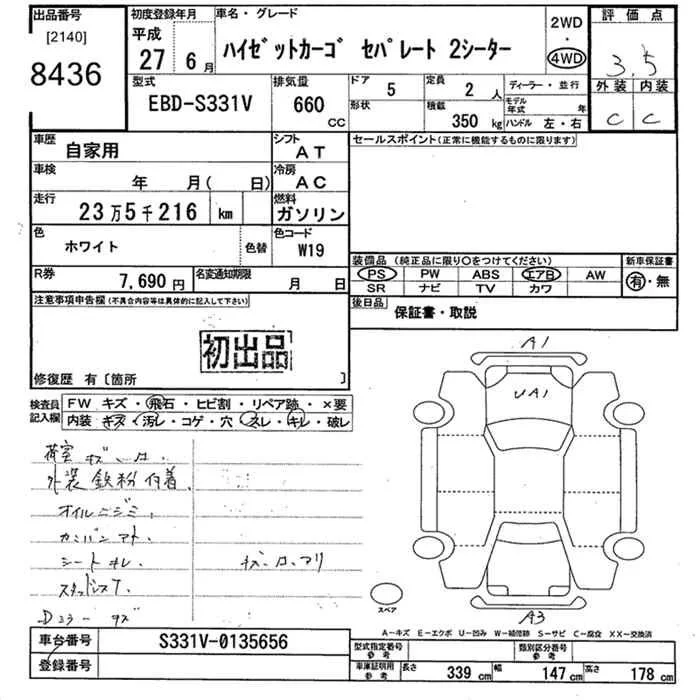 出品番号 初度登録年月 車名・グレード 2WD 評価点
[2140] 平成 ハイゼットカーゴ セパレート 2シーター ・
8436 27年 6月 4WD 3.5
型式 排気量 ドア 5 定員 2人 ディーラー・並行 外装 内装
EBD-S331V 660 cc 形状 積載 350kg モデル年式 年 ハンドル 左・右 C C
車歴 自家用 シフト AT セールスポイント(正常に機能するものに限ります)
車検 年 月( 日) 冷房 AC
走行 23万5千216 km 燃料 ガソリン
色 ホワイト 色替 色コード W19
装備品 (純正品に限り○をつけてください) 新車保証書
R券 7,690円 名変通知期限 月 日 PS PW ABS エアB AW 有・無
SR ナビ TV カワ
注意事項申告欄(不具合内容等は具体的に記入して下さい) 後日品 保証書・取説
初出品
修復歴 有〔箇所 〕
検査員記入欄 FW キズ・飛石・ヒビ割・リペア跡・×要
内装 キズ・汚レ・コゲ・穴・スレ・キレ・破レ
A1
UA1
荷室 キズ・凹.
外装 鉄粉 付着.
オイルニジミ.
カンバンアト.
シートキレ. キズ・凹アリ
スタッドレス7.
Dミラーキズ
スペア
A3
A−キズ E−エクボ U−凹み W−補修跡 S−サビ C−腐食 XX−交換済
車台番号 S331V-0135656
登録番号
型式指定番号 参考 類別区分番号 参考
車庫証明用 参考 長さ 339cm 幅 147cm 高さ 178cm